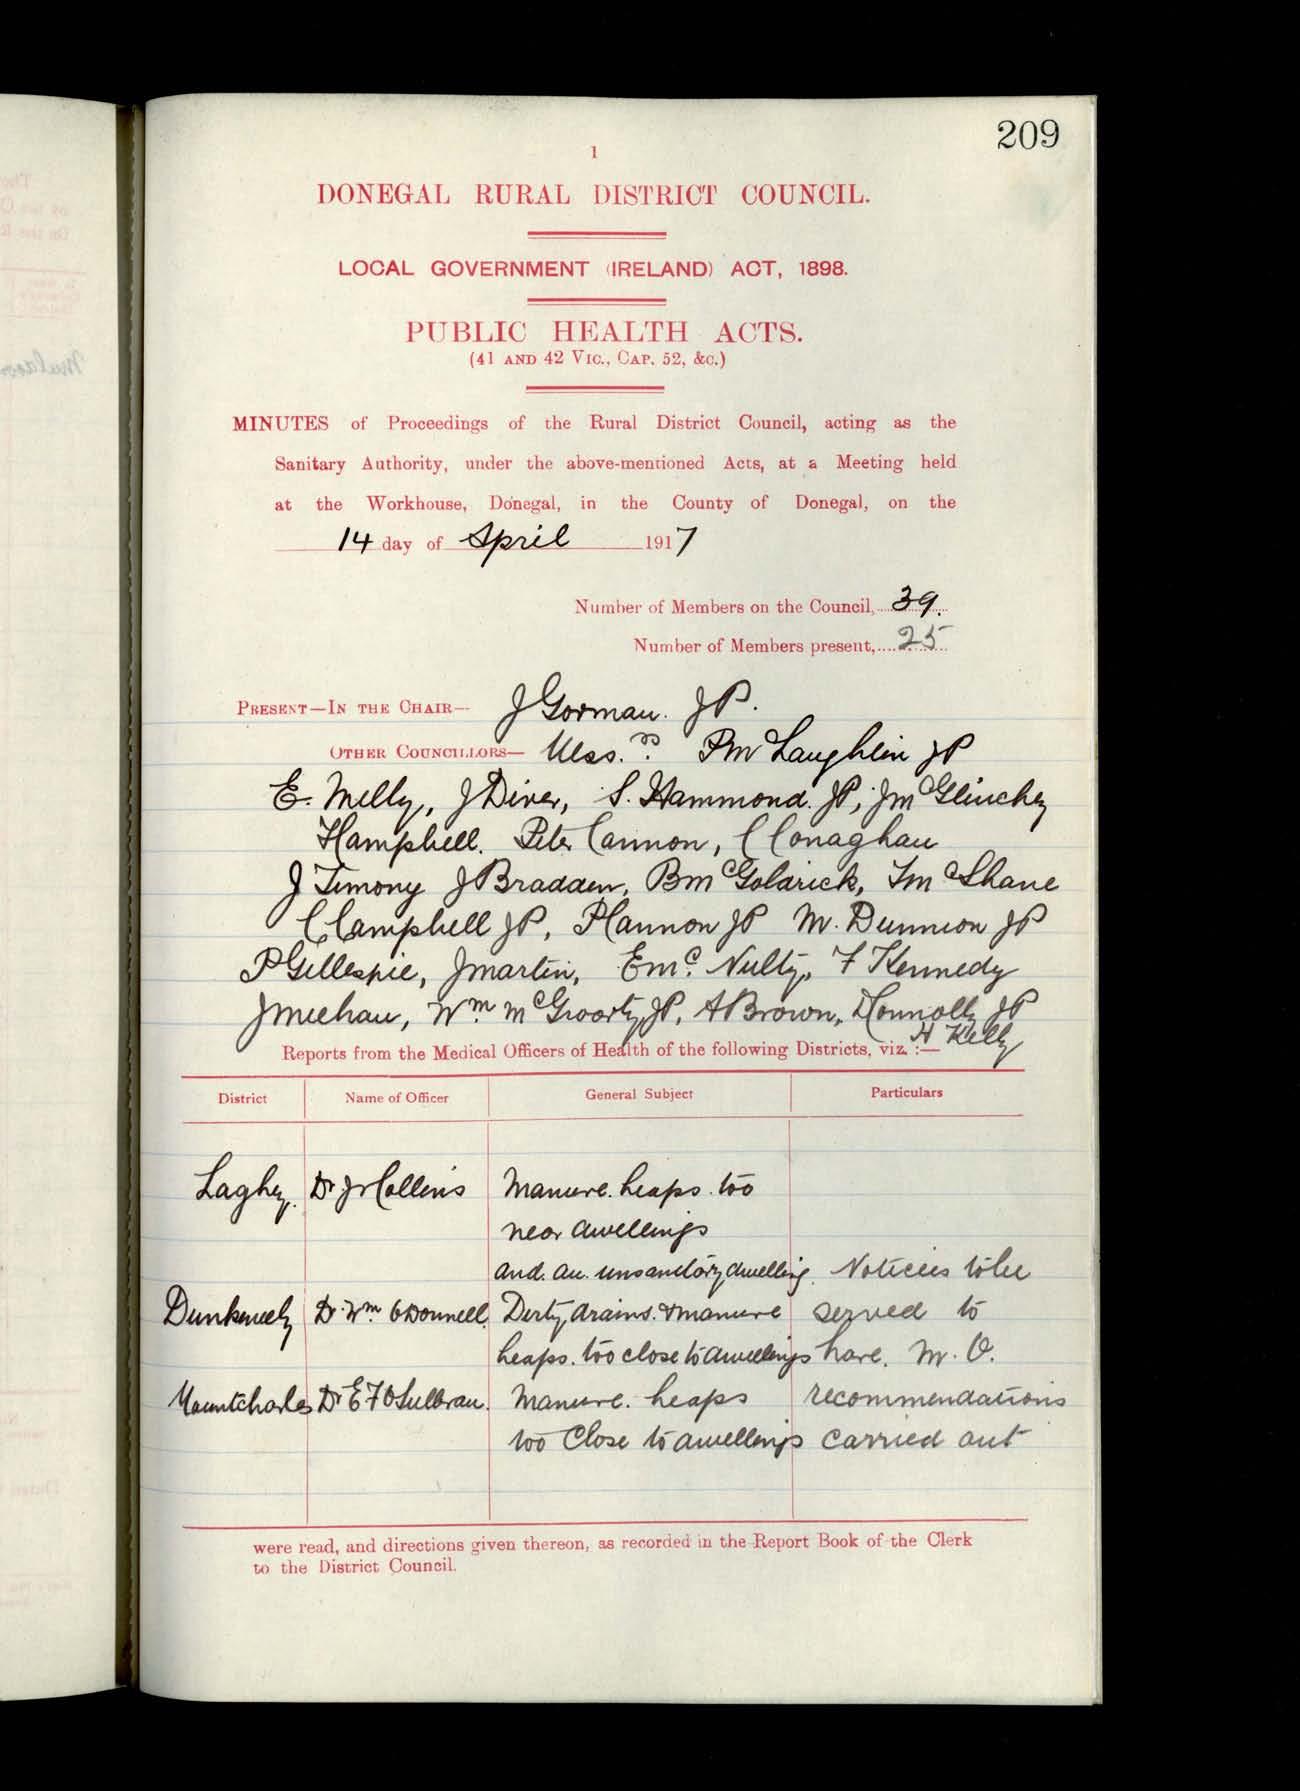 209
1
DONEGAL RURAL DISTRICT COUNCIL.
LOCAL GOVERNMENT (IRELAND) ACT, 1898.
PUBLIC HEALTH ACTS.
(41 AND 42 VIC., CAP. 52, &c.)
MINUTES of Proceedings of the Rural District Council, acting as the
Sanitary Authority, under the above-mentioned Acts, at a Meeting held
at the Workhouse, Donegal, in the County of Donegal, on the
14 day of April 1917
Number of Members on the Council, 39.
Number of Members present, 25
PRESENT—IN THE CHAIR— J Gorman. JP.
OTHER COUNCILLORS— Mess.rs P McLaughlin JP
E. Melly, J Diver, S. Hammond. JP, J McGlinchey
H Campbell. Peter Cannon, C Conaghan
J Timony J Bradden, B McGoldrick, T McShane
C Campbell JP, P Cannon JP M. Dunnion JP
P Gillespie, J Martin, E Mc. Nulty, F Kennedy
J Meehan, Wm. McGroarty JP, A Brown, D Connolly JP
H Kelly
Reports from the Medical Officers of Health of the following Districts, viz. :—
District Name of Officer General Subject Particulars
Laghey. Dr J Collins Manure. heaps. too
near dwellings
and. an. unsanitary dwelling. Notices to be
Dunkineely Dr. Wm. O Donnell. Dirty drains. & manure served to
heaps. too close to dwellings have. M. O.
Mountcharles Dr E F O Sullivan. Manure. heaps recommendations
too close to dwellings carried out
were read, and directions given thereon, as recorded in the Report Book of the Clerk
to the District Council.